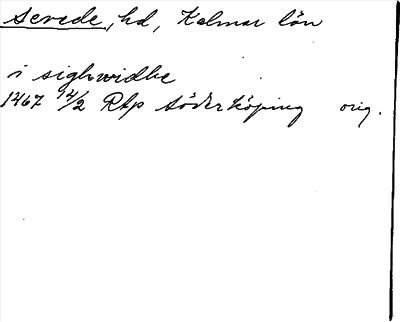 Sevede, hd, Kalmar län
i sighwidhe
1467 14/2 Rkp Söderköping orig.